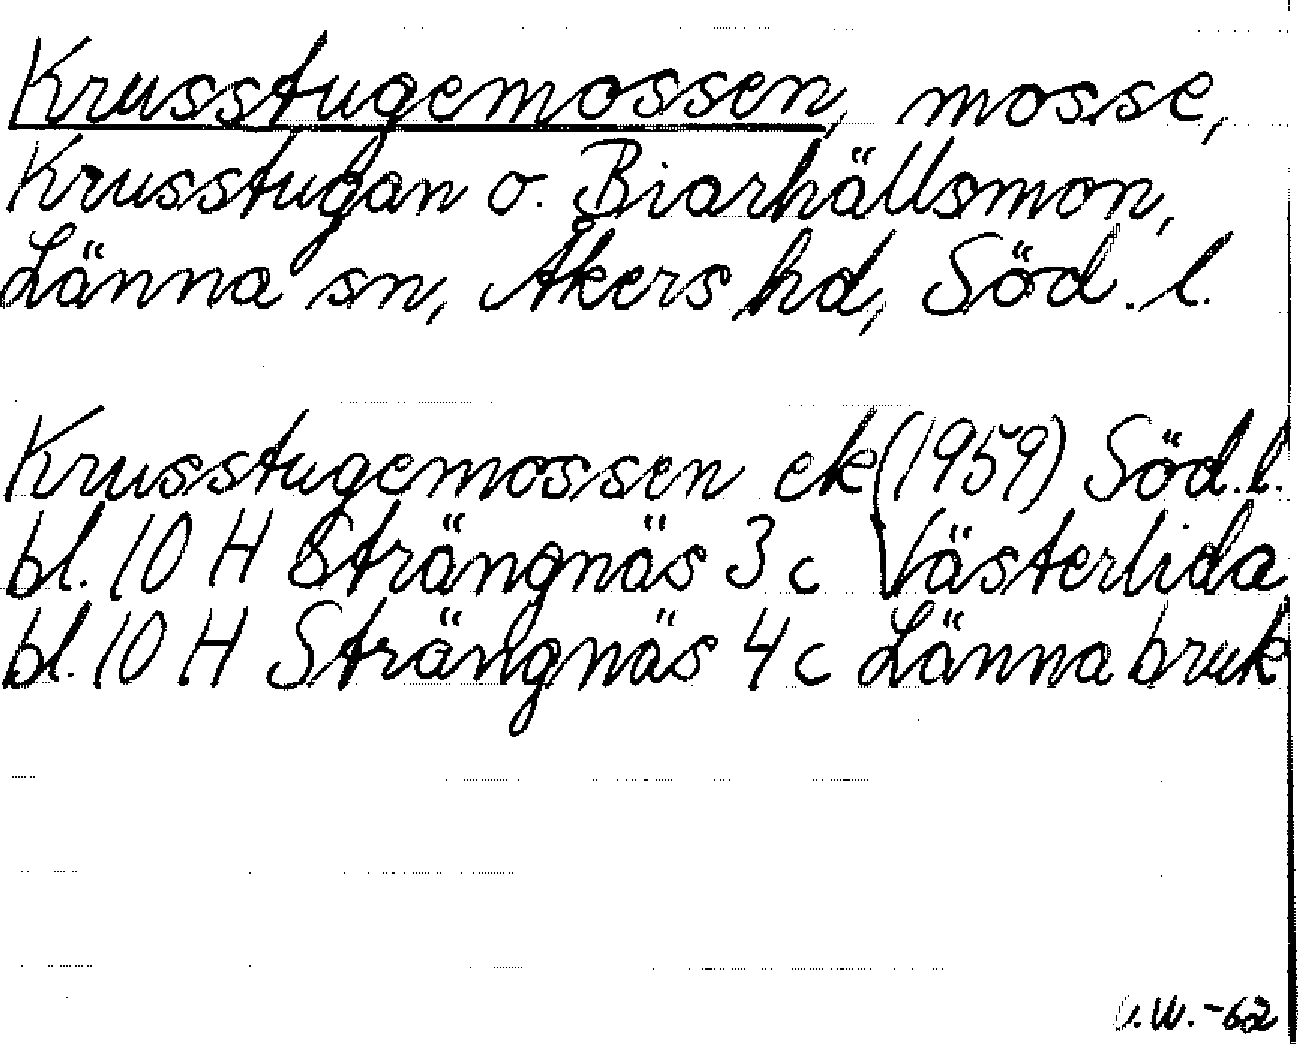 Krusstugemossen, mosse,
Krusstugan o. Biarhällsmon,
Länna sn, Åkers hd, Söd. l.
Krusstugemossen ek (1959) Söd. l.
bl. 10 H Strängnäs 3 c Västerlida
bl. 10 H Strängnäs 4 c Länna bruk
U.W. -62